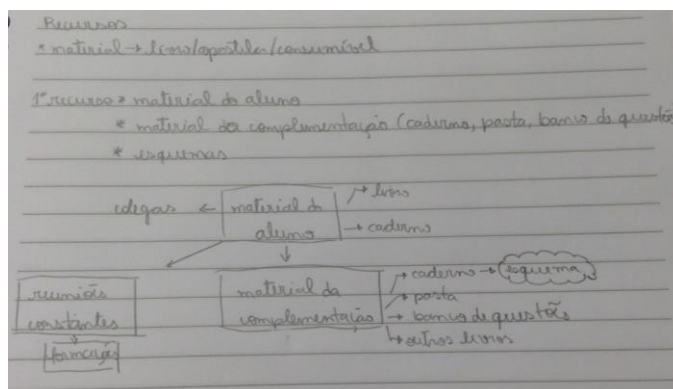 Recursos
* material → livro/apostila/consumível
1º recurso > material do aluno
* material da complementação (caderno, pasta, banco de questões
* esquemas
colegas ← material do aluno → livro
→ caderno
reuniões constantes
formação
material da complementação → caderno → esquema
→ pasta
→ banco de questões
→ outros livros